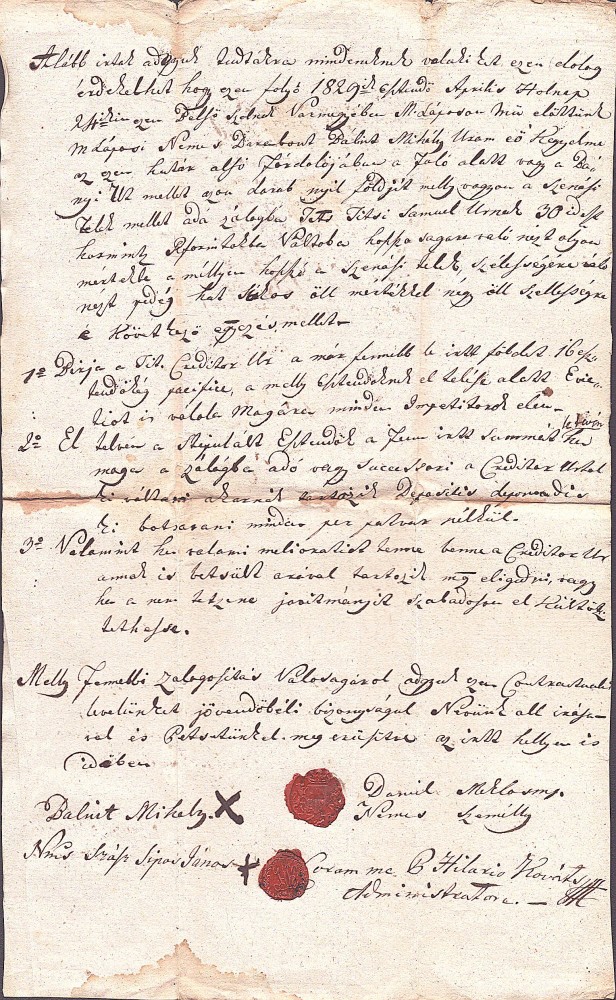 Alább irtak adgyuk tudtokra mindeneknek valakiket ezen dolog
érdekelhet hogy ezen folyó 1829ik Esztendő Aprilis Holnap
ezen Belső Szolnok Varmegyében M Láposon Mü előttünk
M Láposi Nemes Bálint Mihály Uram eő Kegyelme
az ezen határ alsó Fordolójában a Toló alatt vagy a
nyi Ut mellet azon darab nyil földjét melly vagyon a Szénási
Telek mellet adá zálogba Titsi Samuel Urnak 30 idest
harmintz Rforintokba Váltoba hoszszaságára való nézt olyan
mértékbe a mellyen hoszszú a Szenási telek, szélességére való
nézt pedég hat sukos öll mértékkel negy öll szellességre
é következő egyezés mellet
1o Birja a Tit. Creditor Ur a már fennebb le irtt földet 16 esz
tendőkig pacifice, a melly Esztendőknek el telése alatt Evic
tiot is válola Magára minden Impetitorok ellen
2o El telvén a Stipulált Esztendők a Fenn irtt Summát ha
maga a zálogba adó vagy Successori a Creditor Urtol
ki váltani akarnák tartozik Depositis deponendis
ki botsátani minden per patvar nélkül.
3o Valamint ha valami melioratiot tenne benne a Creditor Ur
annak is betsült árával tartozik meg eligedni, vagy
ha a nem tetszene javitmányit szabadoson el
tethesse.
Melly Fennebbi zálogositás Valoságárol adgyuk ezen Contractualis
levelünket jövendőbéli bizonyságul Nevünk all irásá
val és Petsétünkel meg erősitve az irtt hellyen és
időben
Bálint Mihály X
Daniel Miklos mp.
Nemes Személly
Nms Szász Sipos János X
Coram me P Hilario Kováts
Administratore.